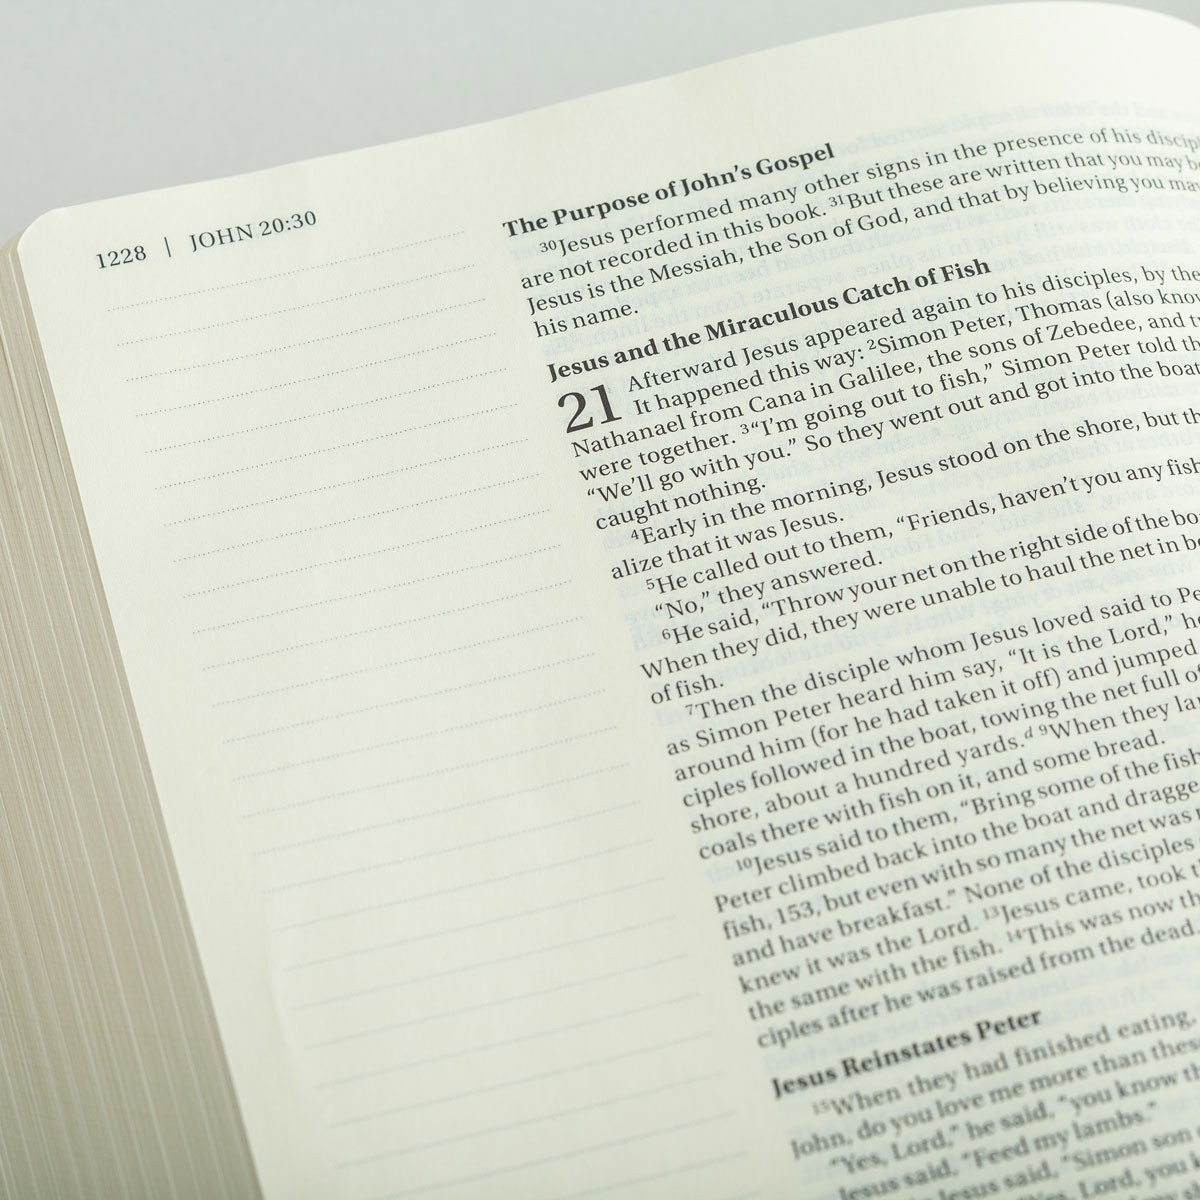 1228 | JOHN 20:30
The Purpose of John's Gospel
30Jesus performed many other signs in the presence of his
are not recorded in this book. 31But these are written that you may
Jesus is the Messiah, the Son of God, and that by believing you
his name.
Jesus and the Miraculous Catch of Fish
21 Afterward Jesus appeared again to his disciples, by the
It happened this way: 2Simon Peter, Thomas (also
Nathanael from Cana in Galilee, the sons of Zebedee, and
were together. 3“I'm going out to fish,” Simon Peter told
“We'll go with you.” So they went out and got into the boat
caught nothing.
4Early in the morning, Jesus stood on the shore, but
alize that it was Jesus.
5He called out to them, “Friends, haven't you any fish
“No,” they answered.
6He said, “Throw your net on the right side of the
When they did, they were unable to haul the net in
of fish.
7Then the disciple whom Jesus loved said to
as Simon Peter heard him say, “It is the Lord,”
around him (for he had taken it off) and jumped
ciples followed in the boat, towing the net full of
shore, about a hundred yards.d 9When they
coals there with fish on it, and some bread.
10Jesus said to them, “Bring some of the fish
Peter climbed back into the boat and
fish, 153, but even with so many the net was
and have breakfast.” None of the disciples
knew it was the Lord. 13Jesus came, took
the same with the fish. 14This was now
ciples after he was raised from the dead.
Jesus Reinstates Peter
15When they had finished eating,
John, do you love me more than these
“Yes, Lord,” he said, “you know
Jesus said, “Feed my lambs.”
Jesus said, “Simon son
Lord, you